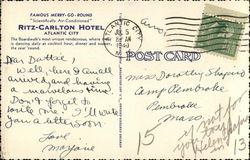 FAMOUS MERRY-GO-ROUND
"Scientifically Air-Conditioned"
RITZ-CARLTON HOTEL
ATLANTIC CITY
The Boardwalk's most unique rendezvous, where there
is dancing daily at cocktail hour, dinner and supper
the year 'round.
ATLANTIC CITY
JUL 5
1940
POST CARD
Dear Dottie
Well, here I am all
arrived and having
a marvelous time.
Don't forget to
write me & I'll write
you a letter soon.
Love
Marjorie
Miss Dorothy Shapiro
Camp Pembroke
Pembroke
Mass.
15
15